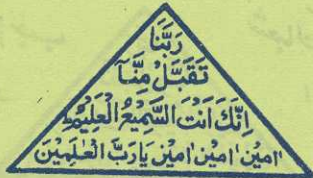 رَبَّنَا
تَقَبَّلْ مِنَّآ
اِنَّكَ اَنْتَ السَّمِيْعُ الْعَلِيْمُ ط
اٰمِيْن' اٰمِيْن' اٰمِيْن يَارَبَّ الْعٰلَمِيْنَ